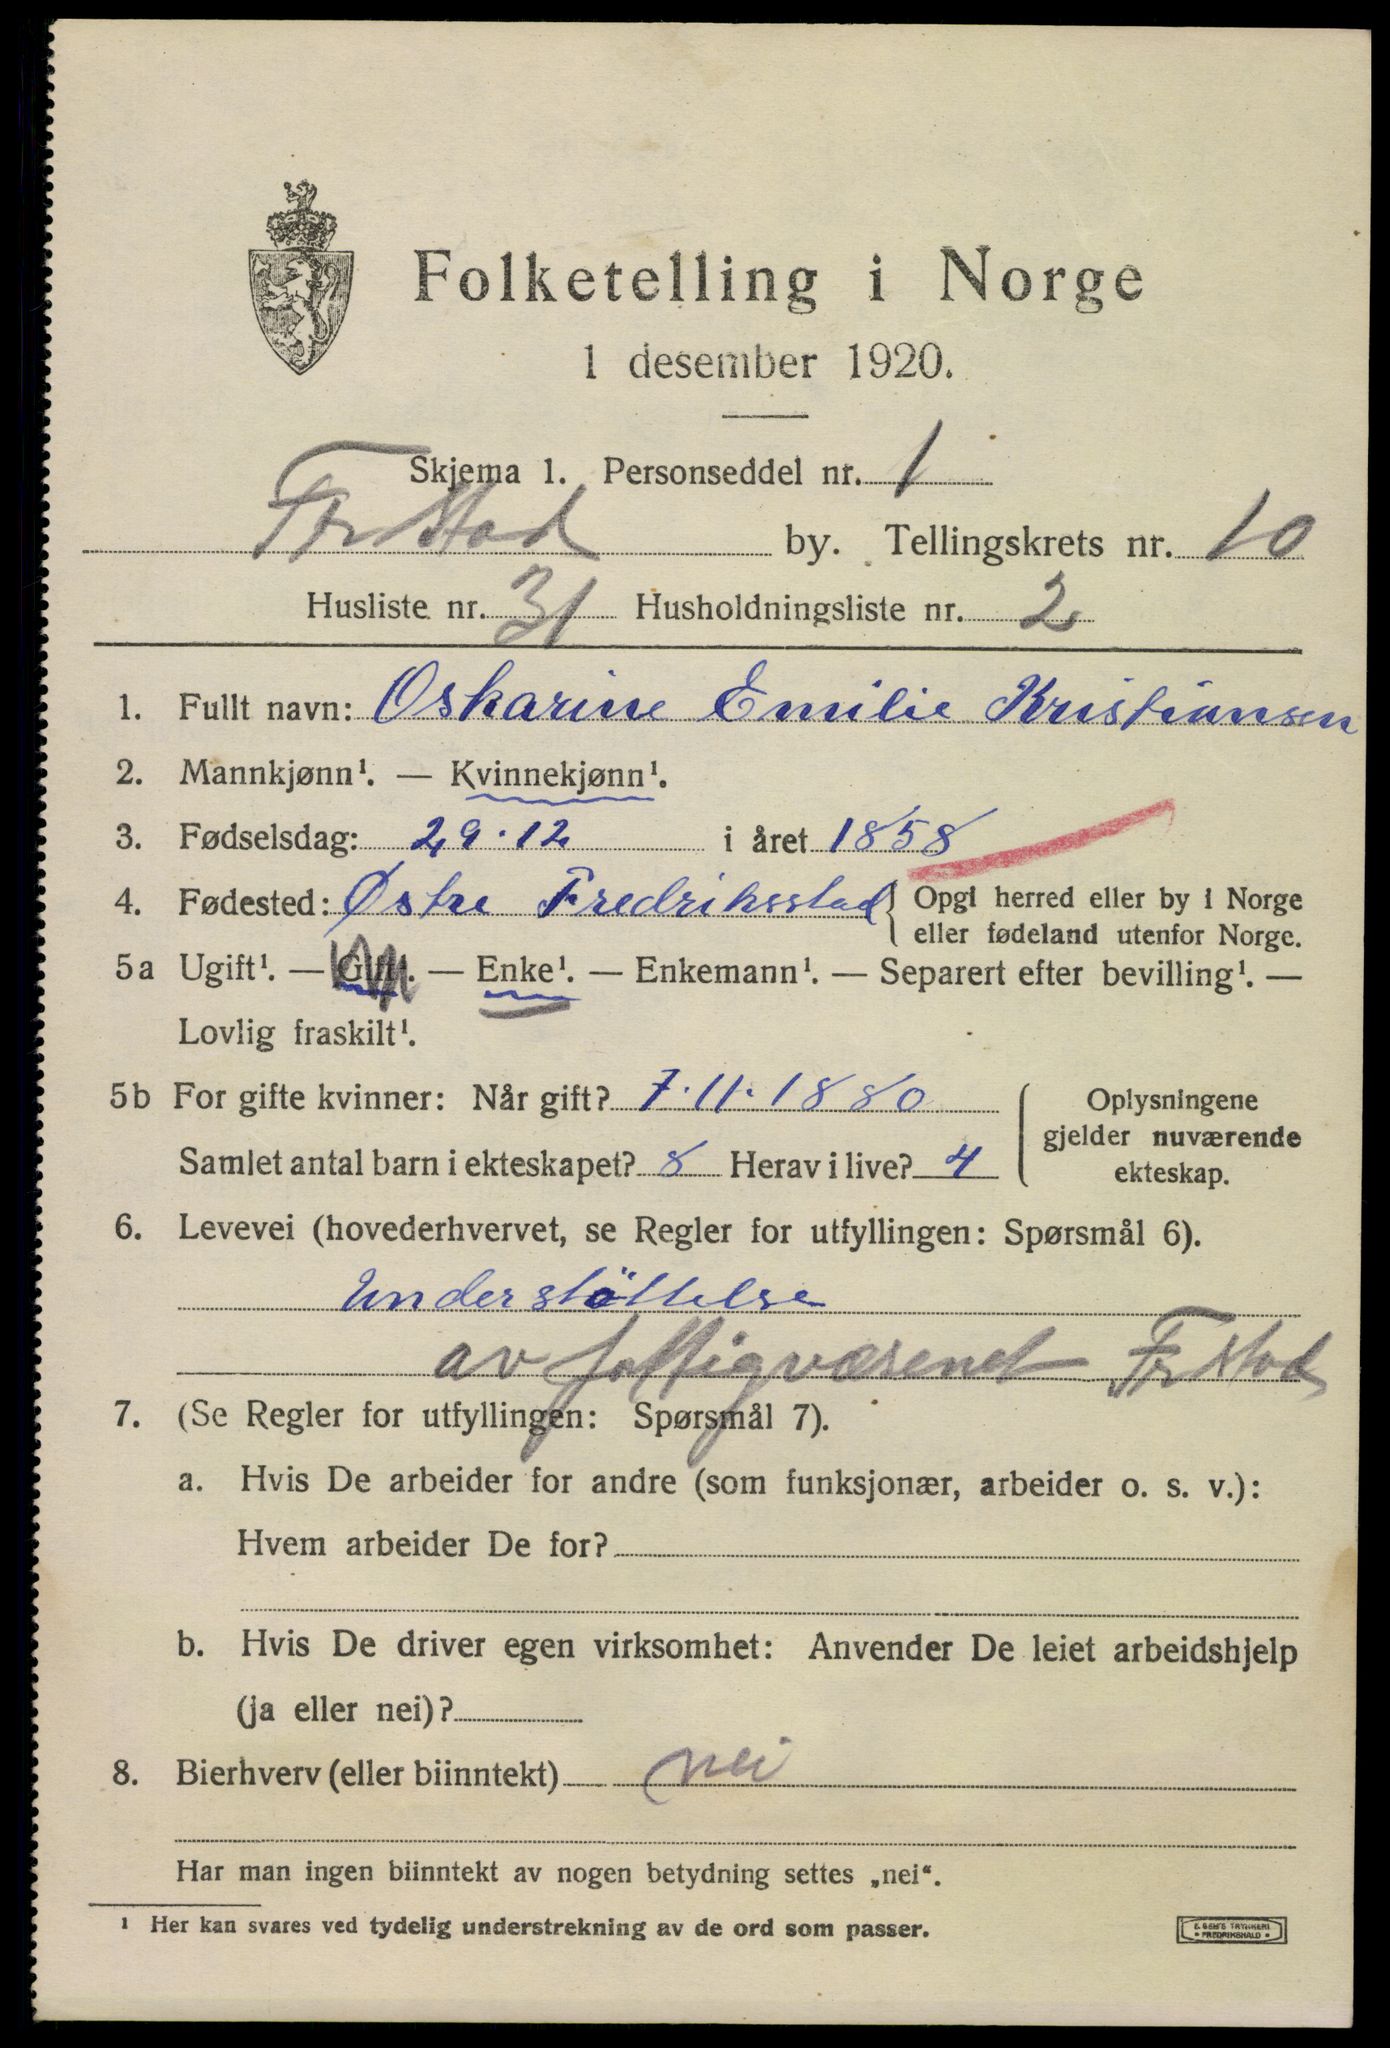 Folketelling i Norge
1 desember 1920.
Skjema 1. Personseddel nr. 1
Frstad by. Tellingskrets nr. 10
Husliste nr. 31 Husholdningsliste nr. 2
1. Fullt navn: Oskarine Emilie Kristiansen
2. Mannkjønn¹. — Kvinnekjønn¹.
3. Fødselsdag: 29.12 i året 1858
4. Fødested: Østre Fredriksstad { Opgi herred eller by i Norge
eller fødeland utenfor Norge.
5a Ugift¹. — — Enke¹. — Enkemann¹. — Separert efter bevilling¹. —
Lovlig fraskilt¹.
5b For gifte kvinner: Når gift? 7.11.1880
Samlet antal barn i ekteskapet? 8 Herav i live? 4
Oplysningene
gjelder nuværende
ekteskap.
6. Levevei (hovederhvervet, se Regler for utfyllingen: Spørsmål 6).
Understöttelse
av fattigvæsenet Frstad
7. (Se Regler for utfyllingen: Spørsmål 7).
a. Hvis De arbeider for andre (som funksjonær, arbeider o. s. v.):
Hvem arbeider De for?
b. Hvis De driver egen virksomhet: Anvender De leiet arbeidshjelp
(ja eller nei)?
8. Bierhverv (eller biinntekt) nei
Har man ingen biinntekt av nogen betydning settes „nei“.
¹ Her kan svares ved tydelig understrekning av de ord som passer.
TRYKKERI
• FREDRIKSHALD •